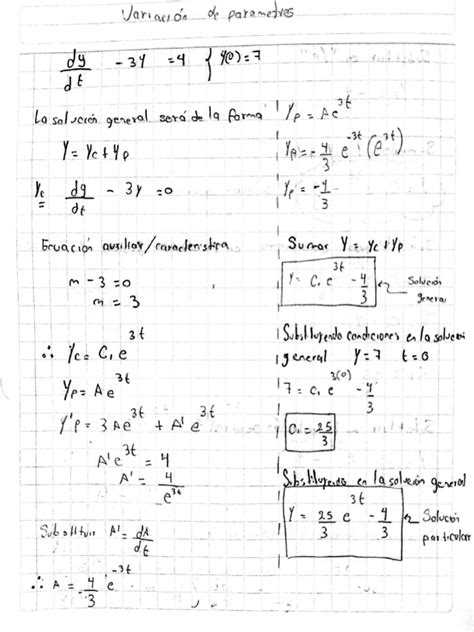 Variación de parametros
dy/dt - 3y = 4 { y(0)=7
La solución general será de la forma
Y = Yc + Yp
Yc = dy/dt - 3y = 0
Ecuación auxiliar/caracteristica
m - 3 = 0
m = 3
∴ Yc = C₁e^3t
Yp = Ae^3t
Y'p = 3Ae^3t + A'e^3t
A'e^3t = 4
A' = 4/e^3t
Substituir A' = dA/dt
∴ A = -4/3 e^-3t
Yp = Ae^3t
Yp = -4/3 e^-3t (e^3t)
Yp = -4/3
Sumar Y = Yc + Yp
Y = C₁e^3t - 4/3 Solución
general
Substituyendo condiciones en la solución
general Y=7 t=0
7 = C₁e^3(0) - 4/3
C₁ = 25/3
Substituyendo en la solución general
Y = 25/3 e^3t - 4/3 Solución
particular